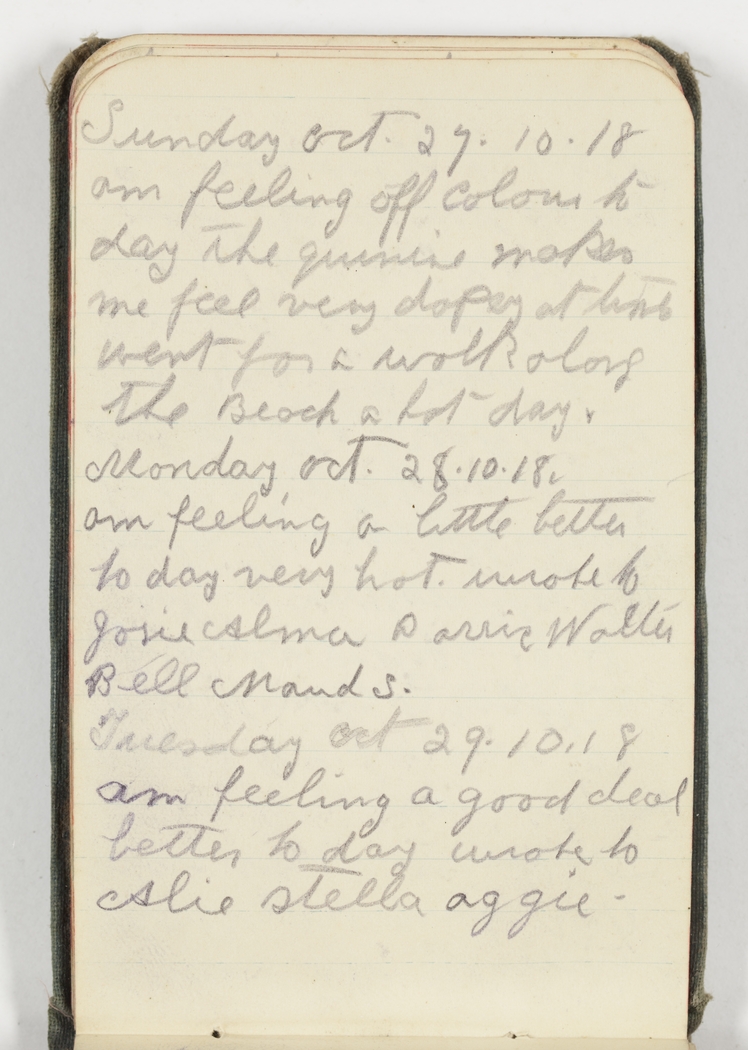 Sunday Oct. 27. 10. 18
am feeling off colour to
day the quinine makes
me feel very dopey at times
went for a walk along
the Beach a hot day.
Monday Oct. 28.10.18.
am feeling a little better
to day very hot. wrote to
Josie Alma Dorrie Walter
Bell Maud S.
Tuesday Oct 29.10.18
am feeling a good deal
better to day wrote to
Alie Stella Aggie -